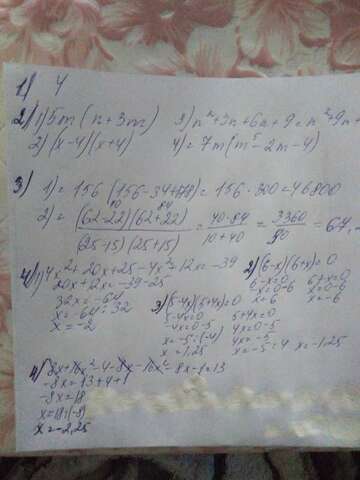 1) 4
2) 1) 5m(n+3m) 3) n²+3n+6n+9=n²+9n+
2) (x-4)(x+4) 4) = 7m(m⁵-2m-4)
3) 1) = 156 (156-34+178) = 156·300=46800
2) = (62-22)(62+22) / (25-15)(25+15) = 40·84 / 10+40 = 3360 / 90 = 67,
4) 1) 4x²+20x+25-4x²+12x=-39 2) (6-x)(6+x)=0
20x+12x=-39-25 6-x=0 6+x=0
32x=-64 3) (5-4x)(5+4x)=0 x=0-6 x=0-6
x=-64:32 5-4x=0 5+4x=0 x=6 x=-6
x=-2 -4x=0-5 4x=0-5
x=-5:(-4) 4x=-5
x=1,25 x=-5:4 x=-1,25
4) 8x+16x²-4-8x-16x²-8x-1=13
-8x=13+4+1
-8x=18
x=18:(-8)
x=-2,25